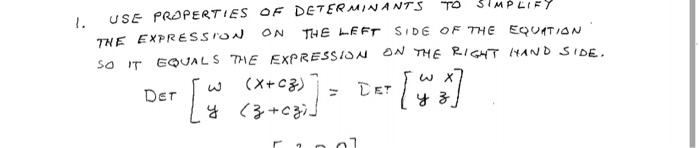 1. USE PROPERTIES OF DETERMINANTS TO SIMPLIFY
THE EXPRESSION ON THE LEFT SIDE OF THE EQUATION
SO IT EQUALS THE EXPRESSION ON THE RIGHT HAND SIDE.
DET [ w (x+cz) ] = DET [ w x ]
[ y (z+cz) ] [ y z ]